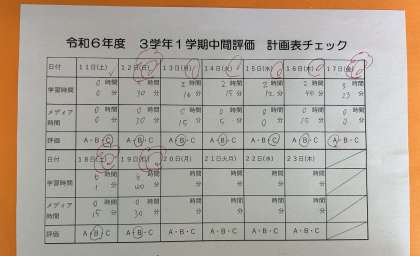 令和6年度 3学年1学期中間評価 計画表チェック
日付 11日(土) 12日(日) 13日(月) 14日(火) 15日(水) 16日(木) 17日(金)
学習時間 0時間 0分 時間 30分 2時間 16分 2時間 15分 2時間 12分 時間 分 3時間 23分
メディア時間 0時間 0分 0時間 30分 0時間 15分 0時間 5分 0時間 0分 0時間 15分 0時間 分
評価 A・B・C A・B・C A・B・C A・B・C A・B・C A・B・C A・B・C
日付 18日(土) 19日(日) 20日(月) 21日(火) 22日(水) 23日(木)
学習時間 時間 1分 時間 40分 時間 分 時間 分 時間 分 時間 分
メディア時間 時間 15分 時間 30分 時間 分 時間 分 時間 分 時間 分
評価 A・B・C A・B・C A・B・C A・B・C A・B・C A・B・C